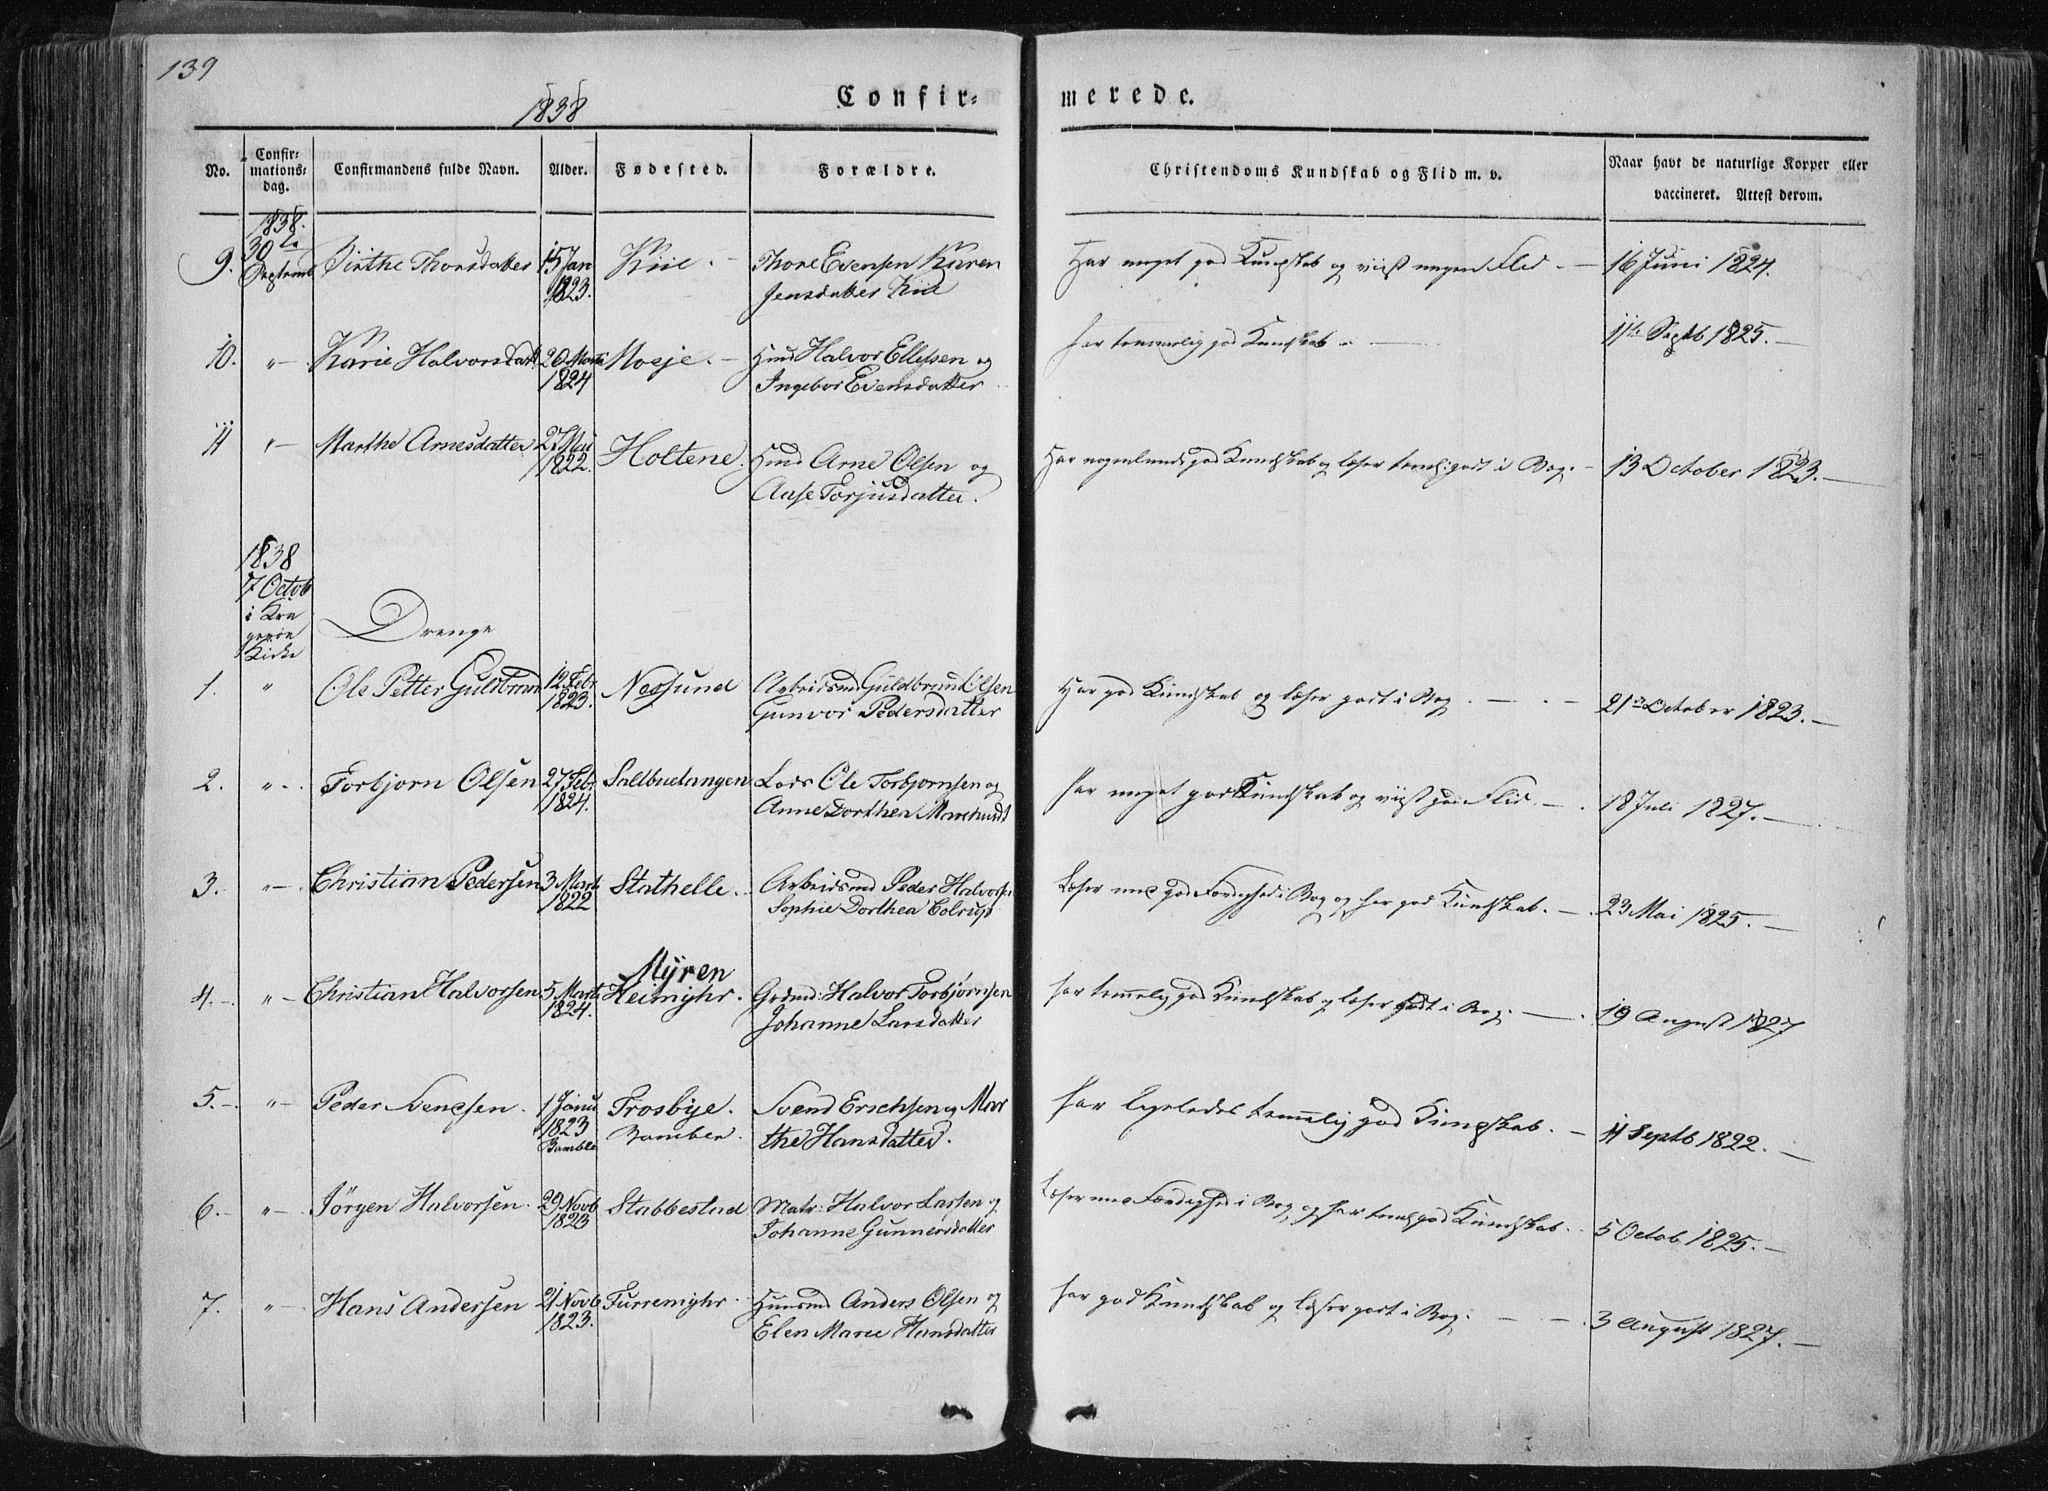 139
1838
Confir= merede.
No. Confir-mations-dag. Confirmandens fulde Navn. Alder. Fødested. Forældre. Christendoms Kundskab og Flid m. v. Naar havt de naturlige Kopper eller vaccineret. Attest derom.
1838.
9. 30te Birthe Thorsdatter 15 Jan Kiil. – Thore Evensen Karen Har meget god Kundskab og viist megen Flid. – 16 Juni 1824.
Septemb 1823. Jensdatter Kiil
10. "– Karie Halvorsdatt 20 Marti Mosje. – Hmd Halvor Ellefsen og har temmelig god Kundskab – 11te Septb 1825. –
1824 Ingebor Evensdatter
11 "– Marthe Arnesdatter 27 Mai Holtene. Hmd Arne Olsen og Har nogenlunde god Kundskab og læser teml: godt i Bog. – 13 October 1823. –
1822. Aase Torjusdatter.
1838
7 Octob
i Kra
gerøe
Kirke
Drenge
1. " Ole Petter Guldbrun 12 Febr Nessund Arbeidsmd Guldbrund Olsen Har god Kundskab og læser godt i Bog. – – 21de October 1823. –
1823. Gunvor Pedersdatter
2. "– Torbjorn Olsen 27 Febr Saltbuetangen Lods Ole Torbjornsen og har meget god Kundskab og viist god Flid. – 18 Juli 1827. –
1824. Anne Dorthea
3. "– Christian Pedersen 3 Marti Stathelle. Arbeidsmd Peder Halvorsen Læser med god Færdighed i Bog og har god Kundskab. – 23 Mai 1825. –
1822 Sophie Dorthea
Myren
4. – "– Christian Halvorsen 5 Marti Heimyhr. Grdmd: Halvor Torbjørnsen har temmelig god Kundskab og læser godt i Bog. – 19 August 1827
1824. Johanne Larsdatter
5. – "– Peder Svensen. 1 Janu Trosbye. Svend Erichsen og Mar har ligeledes temmelig god Kundskab. – 11 Septb 1822. –
1823 Bamble. the Hansdatter.
Bamble
6. – "– Jörgen Halvorsen. 29 Novb Stabbestad Matr: Halvor Larsen og Læser med Færdighed i Bog og har teml god Kundskab. 5 Octob 1825. –
1823 Johanne Gunnersdatter
7. "– Hans Andersen 21 Novb Furremyhr Huusmd Anders Olsen og har god Kundskab og læser godt i Bog. – – 3 August 1827. –
1823. Elen Marie Hansdatter